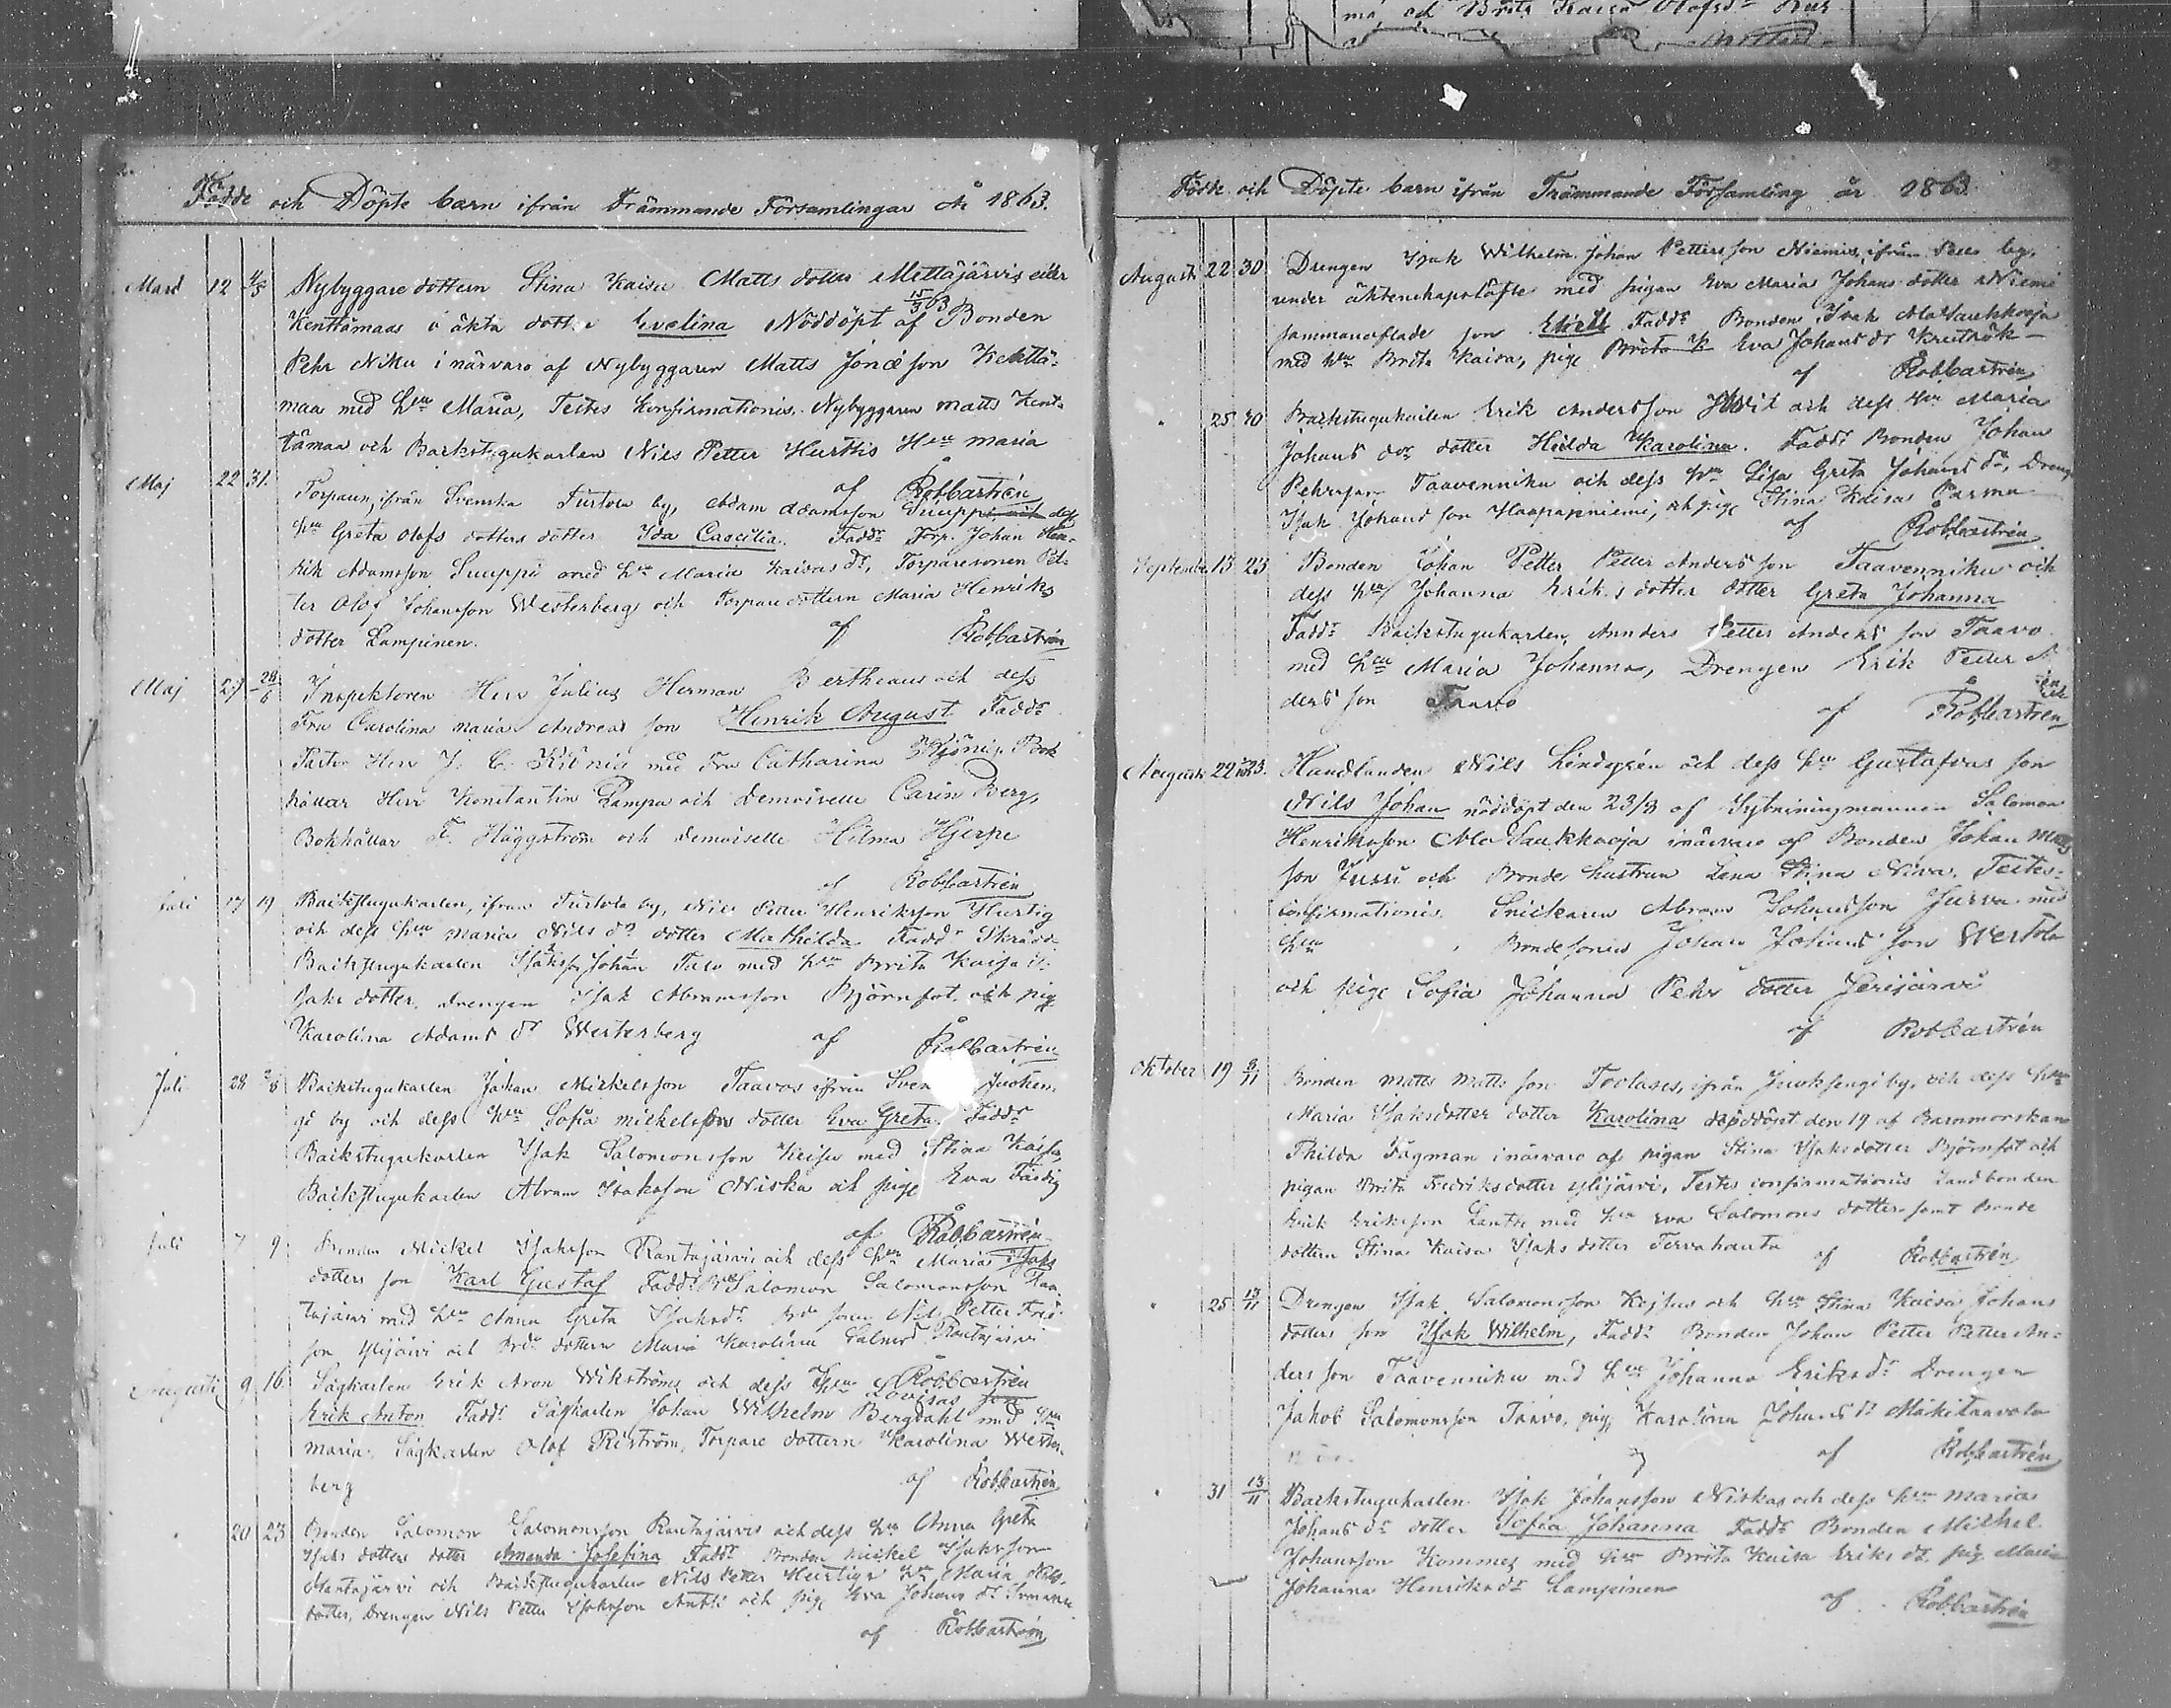 må och Brita Kaisa Olofsdr
Födde och Döpte barn ifrån Främmande Församlingar År 1863.
Mars 12 4/5 Nybyggare dottern Stina Kaisa Matts dotter Mettäjärvis eller
Kenttämaas o äkta dotter Evelina Nöddöpt 15/3 63 af Bonden
Pehr Niku i närvaro af Nybyggaren Matts Jonæson Kenttä-
maa med Hru Maria, Testes Konfirmationis. Nybyggaren Matts Kent-
tämaa och Backstugukarlen Nils Petter Hurtis Hru Maria
af Robb Castrén
Maj 22 31. Torparen, ifrån Svenska Turtola by, Adam Adamsson Suuppi och dess
hru Greta Olofs dotters dotter Ida Caecilia. Faddr Torp. Johan Hen-
rik Adamsson Suuppi med hru Maria Kaisas dr, Torparesonen Pet-
ter Olof Johansson Westerberg och Torpare dottern Maria Henriks
dotter Lampinen. af Rob Castrén
Maj 27 28/6 Inspektoren Herr Julius Herman Bertheaus och dess
Fru Carolina Maria Andreas son Henrik August Faddr
Pastor Herr J. C. med Fru Catharina Bok
hållar Herr Konstantin Pampa och Demoiselle Carin Berg,
Bokhållar F. Häggström och demoiselle Hilma Hjerpe
af Rob Castrén
Juli 17 19 Backstugukarlen, ifrån Turtola by, Nils Petter Henriksson Hurtig
och dess hru Maria Nils dr dotter Mathilda Faddr
Backstugukarlen Johan med hru Brita Kaisa I-
saks dotter, drengen Isak Abramsson Björnfot och pig.
Karolina Adams dr Westerberg af Rob Castrén
Juli 28 2/8 Backstugukarlen Johan Mickelsson Taavos ifrån Sven
gi by och dess hru Sofia Mickels dotter Eva Greta. Faddr
Backstugukarlen Isak Salomonsson med Stina Kaisa,
Backstugukarlen Abram Isaksson Niska och pige Eva
af Rob Castrén
Juli 7 9 Bonden Mickel Isaksson Rantajärvi och dess hru Marias Isaks
dotters son Karl Gustaf Faddr Salomon Salomonsson Ran
tajärvi med hru Anna Greta Isaksdr Nils Petter
son Ylijärvi och dottern Maria Karolina Rantajärvi
Rob Castrén
Augusti 9 16 Sågkarlen Erik Aron Wikströms och dess Hru Lovisas son
Erik Anton Faddr Sågkarlen Johan Wilhelm Bergdahl med hru
Maria, Sågkarlen Olof Riström, Torpare dottern Karolina Wester-
berg af Rob Castrén
20 23 Bonden Salomon Salomonsson Rantajärvis och dess hru Anna Greta
Isaks dotters dotter Amanda Josefina Faddr Bonden Mickel Isaksson
Rantajärvi och Backstugukarlen Nils Petter Hurtigs hru Maria Nils
dotter, Drengen Nils Petter Isaksson Antti och pige Eva Johans dr
af Rob Castrén
Födde och Döpte barn ifrån Främmande Församling år 1863
Augusti 22 30 Drengen Isak Wilhelm Johan Petters son Niemis, ifrån by,
under äktenskapslöfte med pigan Eva Maria Johans dotter Niemi
sammanaflade son Faddr Bonden Isak Ala Saukkooja
med hru Brita Kaisa, pige Brita K Eva Johans dr
af Rob Castrén
25 30 Backstugukarlen Erik Andersson och dess hru Maria
Johans drs dotter Hilda Karolina. Faddr Bonden Johan
Pehrsson Taavenniku och dess hru Lisa Greta Johans dr, Dreng
Isak Johansson Haapaniemi, och pige Stina Kaisa Parma
af Rob Castrén
September 13 23 Bonden Johan Petter Petter Anders son Taavenniku och
dess hru Johanna Eriks dotter dotter Greta Johanna
Faddr Backstugukarlen, Annders Petter Anders son Taavo
med hru Maria Johanna, Drengen Erik Petter
ders son Taavo af Rob Castrén
Augusti 22 Handlanden Nils Lindgrén och dess hru Gustafvas son
Nils Johan nöddöpt den 23/8 af Nybniningmannen Salomon
Henriksson Ala Saukkooja i närvaro af Bonden Johan Matts
son Jussi och Bonde hustrun Lena Stina Niva, Testes-
Confirmationis. Snickaren Abram Johansson Jurva med
hru Bondesonen Johan Johans son Wertola
och pige Sofia Johanna Pehrs dotter Jerijärvi
af Rob Castrén
Oktober 19 8/11 Bonden Matts Matts son Toolases, ifrån Juoksengi by, och dess hru
Maria Isaksdotter dotter Karolina nöddöpt den 19 af Barnmorskan
Thilda Fagman i närvaro af pigan Stina Isaksdotter Björnfot och
pigan Brita Fredriksdotter Ylijärvi, Testes confirmationis Landbonden
Erik Eriksson Lantto med hru Eva Salomons dotter samt Bonde
dottern Stina Kaisa Isaks dotter Tervahauta af Rob Castrén
25 15/11 Drengen Isak Salomonsson Kejsus och hru Stina Kaisa Johans
dotters son Isak Wilhelm, Faddr Bonden Johan Petter Petter An-
ders son Taavenniku med hru Johanna Eriksdr Drengen
Jakob Salomonsson Taavo, pig, Karolina Johans dr Mäkitaavola
af Rob Castrén
31 15/11 Backstugukarlen Isak Johansson Niskas och dess hru Marias
Johans dr dotter Sofia Johanna Faddr Bonden Mickel
Johansson Kommes med hru Brita Kaisa Eriks dr pig. Maria
Johanna Henriksdr Lampinen
af Rob Castrén